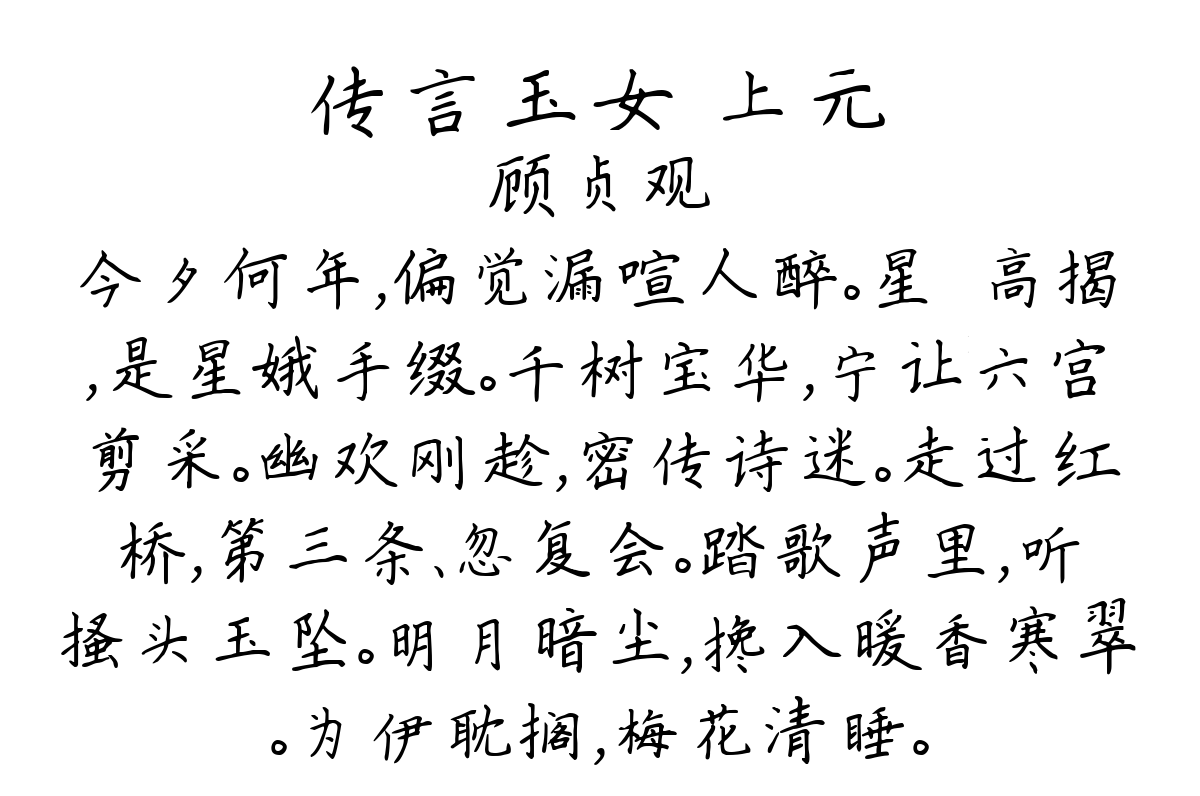 传言玉女 上元
顾贞观
今夕何年,偏觉漏喧人醉。星 高揭
,是星娥手缀。千树宝华,宁让六宫
剪采。幽欢刚趁,密传诗迷。走过红
桥,第三条、忽复会。踏歌声里,听
搔头玉坠。明月暗尘,搀入暖香寒翠
。为伊耽搁,梅花清睡。